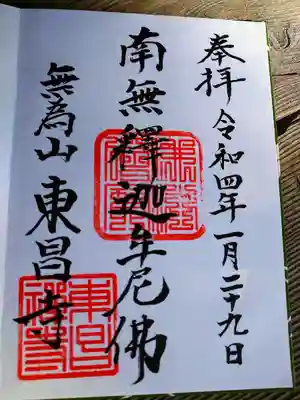 奉拝 令和四年一月二十九日
南無釋迦牟尼佛
無為山 東昌寺